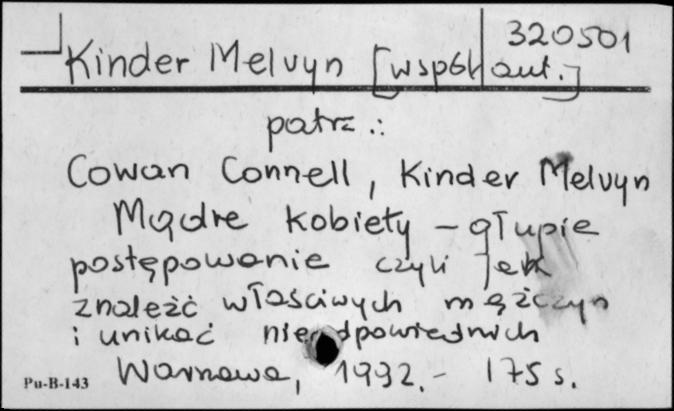 320501
Kinder Melvyn [współaut.]
patrz.:
Cowan Connell, Kinder Melvyn
Mądre kobiety – głupie
postępowanie czyli jak
znaleźć właściwych mężczyzn
i unikać nieodpowiednich
Warszawa, 1992.- 175 s.
Pu-B-143